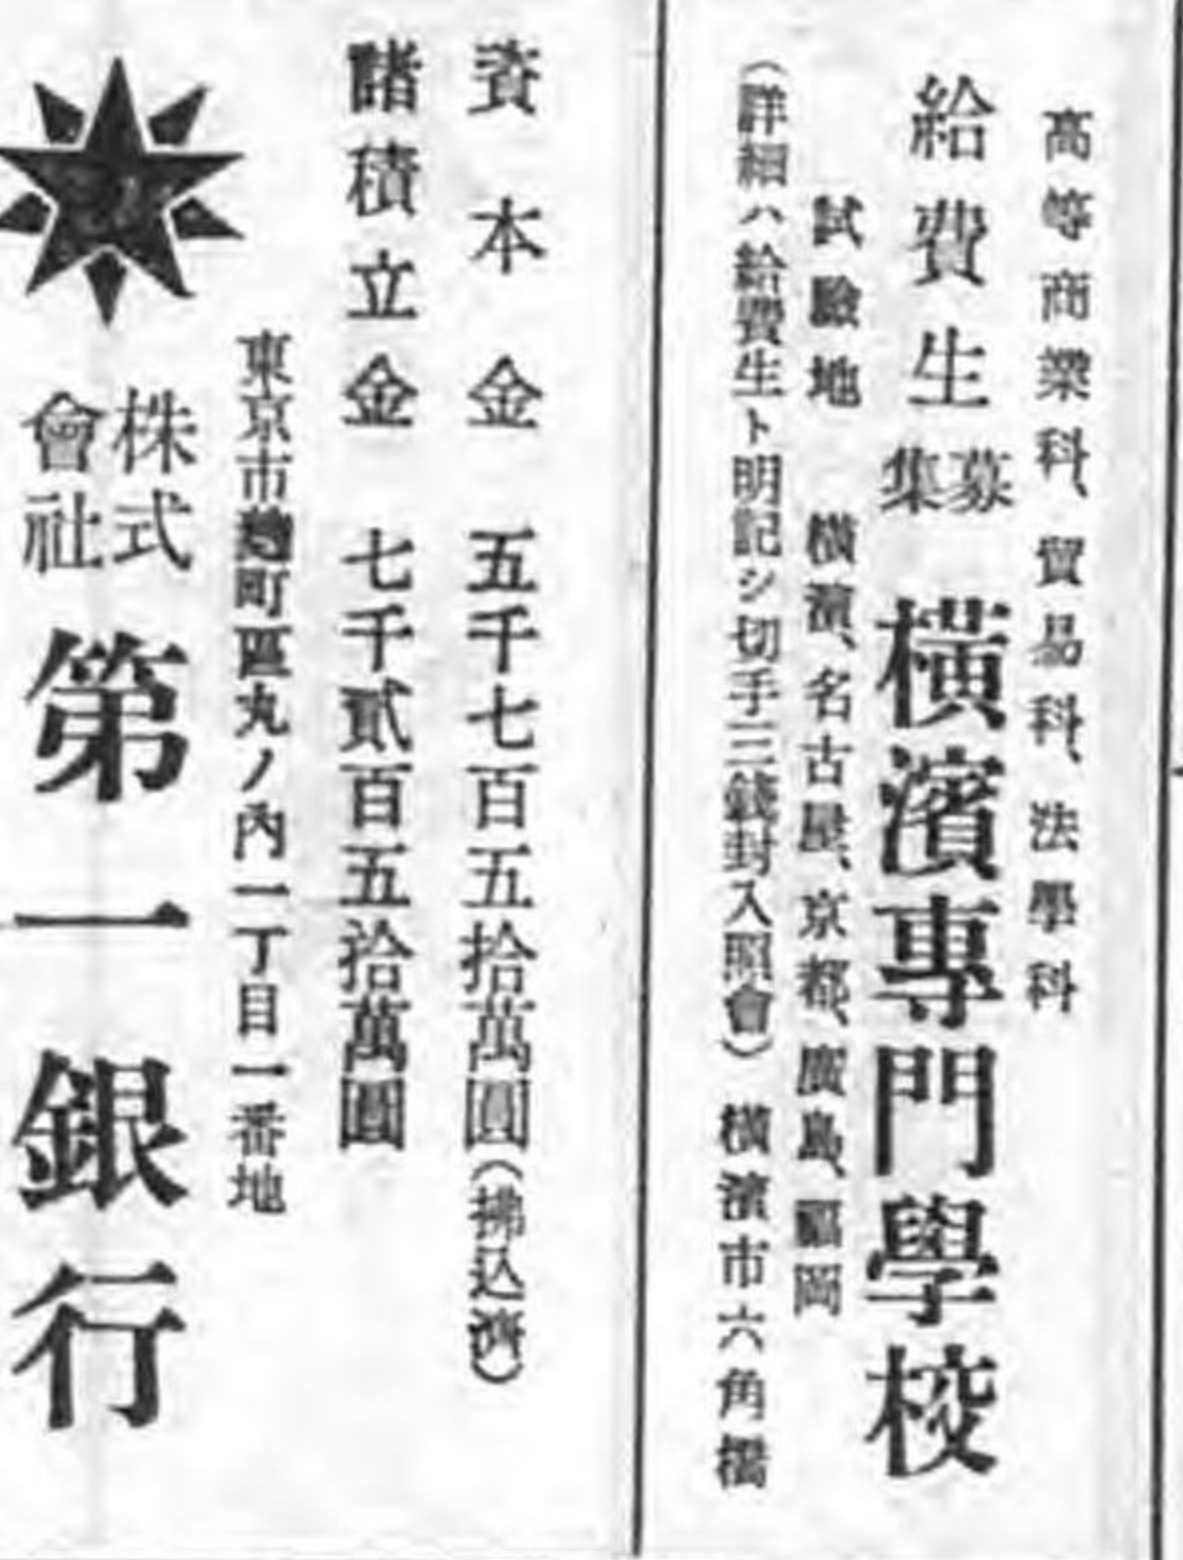 高等商業科、貿易科、法學科
給費生募集 橫濱專門學校
試驗地 橫濱、名古屋、京都、廣島、福岡
（詳細ハ給費生ト明記シ切手三錢封入照會）橫濱市六角橋
資本金 五千七百五拾萬圓（拂込濟）
諸積立金 七千貳百五拾萬圓
東京市麴町區丸ノ內一丁目一番地
株式會社 第一銀行